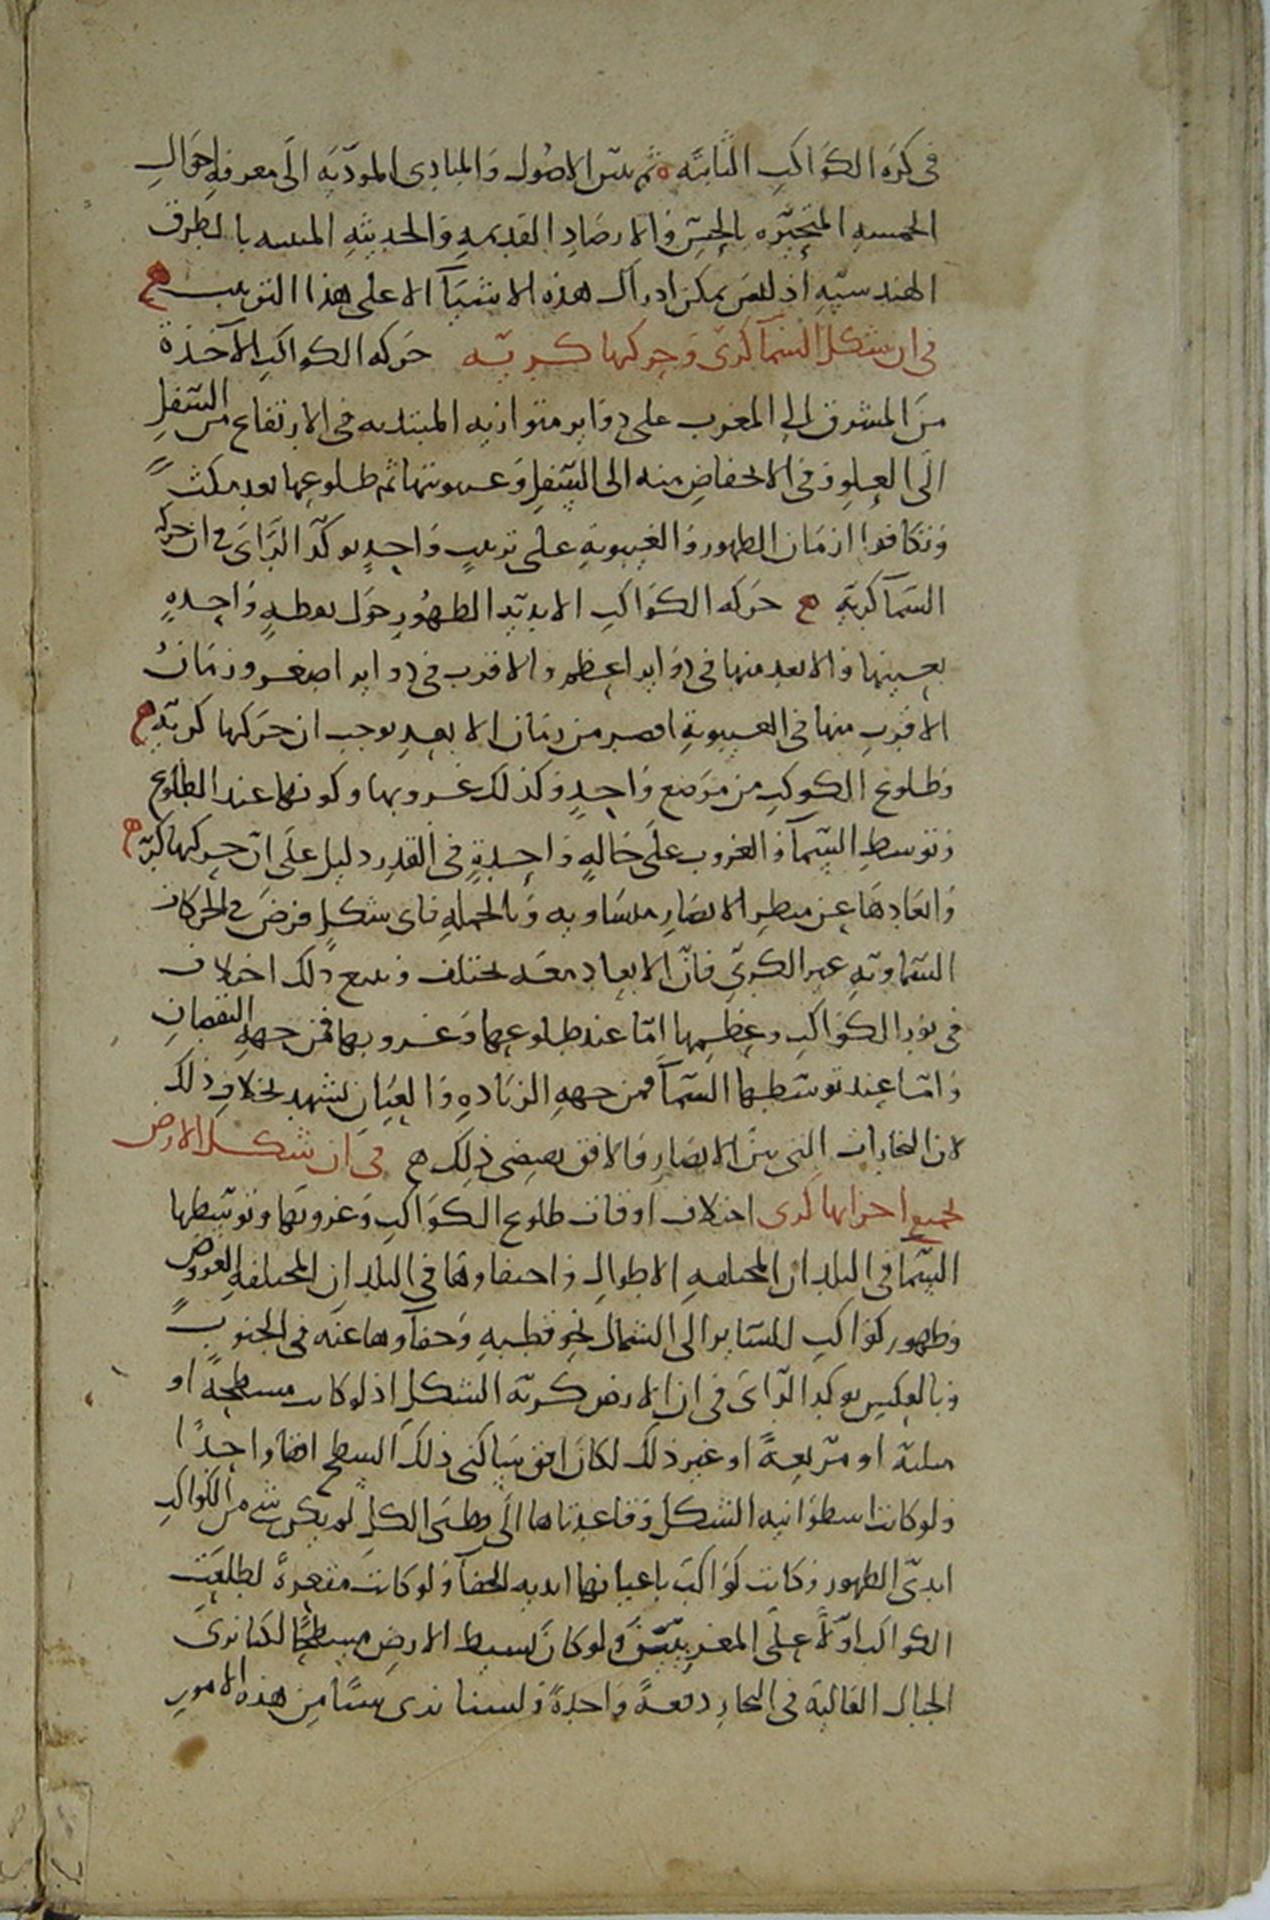 في كرة الكواكب الثابتة ثم نبين الاصول والمبادى المودية الى معرفة احوال
الخمسة المتحيرة بالحس والارصاد القديمة والحديثة المبينة بالطرق
الهندسية اذ ليس يمكن ادراك هذه الاشيآ الا على هذا الترتيب ۿ
في ان شكل السمآ كرى وحركتها كرية حركة الكواكب الآخذة
من المشرق الى المغرب على دواير متوازية المبتدية في الارتفاع من السفل
الى العلو وفي الانخفاض منه الى السفل وغيبوبتها ثم طلوعها بعد مكث
وتكافوا ازمان الظهور والغيبوبة على ترتيب واحد يوكد الراى في ان حركة
السمآ كرية ۿ حركة الكواكب الابدية الظهور حول نقطة واحدة
بعينها والابعد منها في دواير اعظم والاقرب في دواير اصغر وزمان
الاقرب منها في الغيبوبة اقصر من زمان الابعد يوجب ان حركتها كرية ۿ
وطلوع الكوكب من موضع واحد وكذلك غروبها وكونها عند الطلوع
وتوسط السمآ والغروب على حالة واحدة في القدر دليل على ان حركتها كرية ۿ
وابعادها عن منظر الابصار متساوية وبالجملة فاى شكل فرض في الحركات
السماوية غير الكرى فان الابعاد معه تختلف ويتبع ذلك اختلاف
في نور الكواكب وعظمها اما عند طلوعها وغروبها فمن جهة النقصان
واما عند توسطها السمآ فمن جهة الزيادة والعيان يشهد بخلاف ذلك
لان البخارات التي بين الابصار والافق تقتضى ذلك ۿ في ان شكل الارض
بجميع اجزايها كرى اختلاف اوقات طلوع الكواكب وغروبها وتوسطها
السما في البلدان المختلفة الاطوال واختفاوها في البلدان المختلفة العروض
وظهور كواكب للساير الى الشمال نحو قطبه وخفآوها عنه في الجنوب
وبالعكس يوكد الراى في ان الارض كرية الشكل اذ لو كانت مسطحة او
مثلثة او مربعة او غير ذلك لكان افق ساكنى ذلك السطح افقا واحدا
ولو كانت اسطوانية الشكل وقاعدتاها الى قطبى الكل لم يكن شى من الكواكب
ابدى الظهور وكانت كواكب باعيانها ابدية الخفآ ولو كانت مقعرة لطلعت
الكواكب اولا على المغربيين ولو كان بسيط الارض مسطحا لكنا نرى
الجبال العالية في البحار دفعة واحدة ولسنا نرى شيئا من هذه الامور